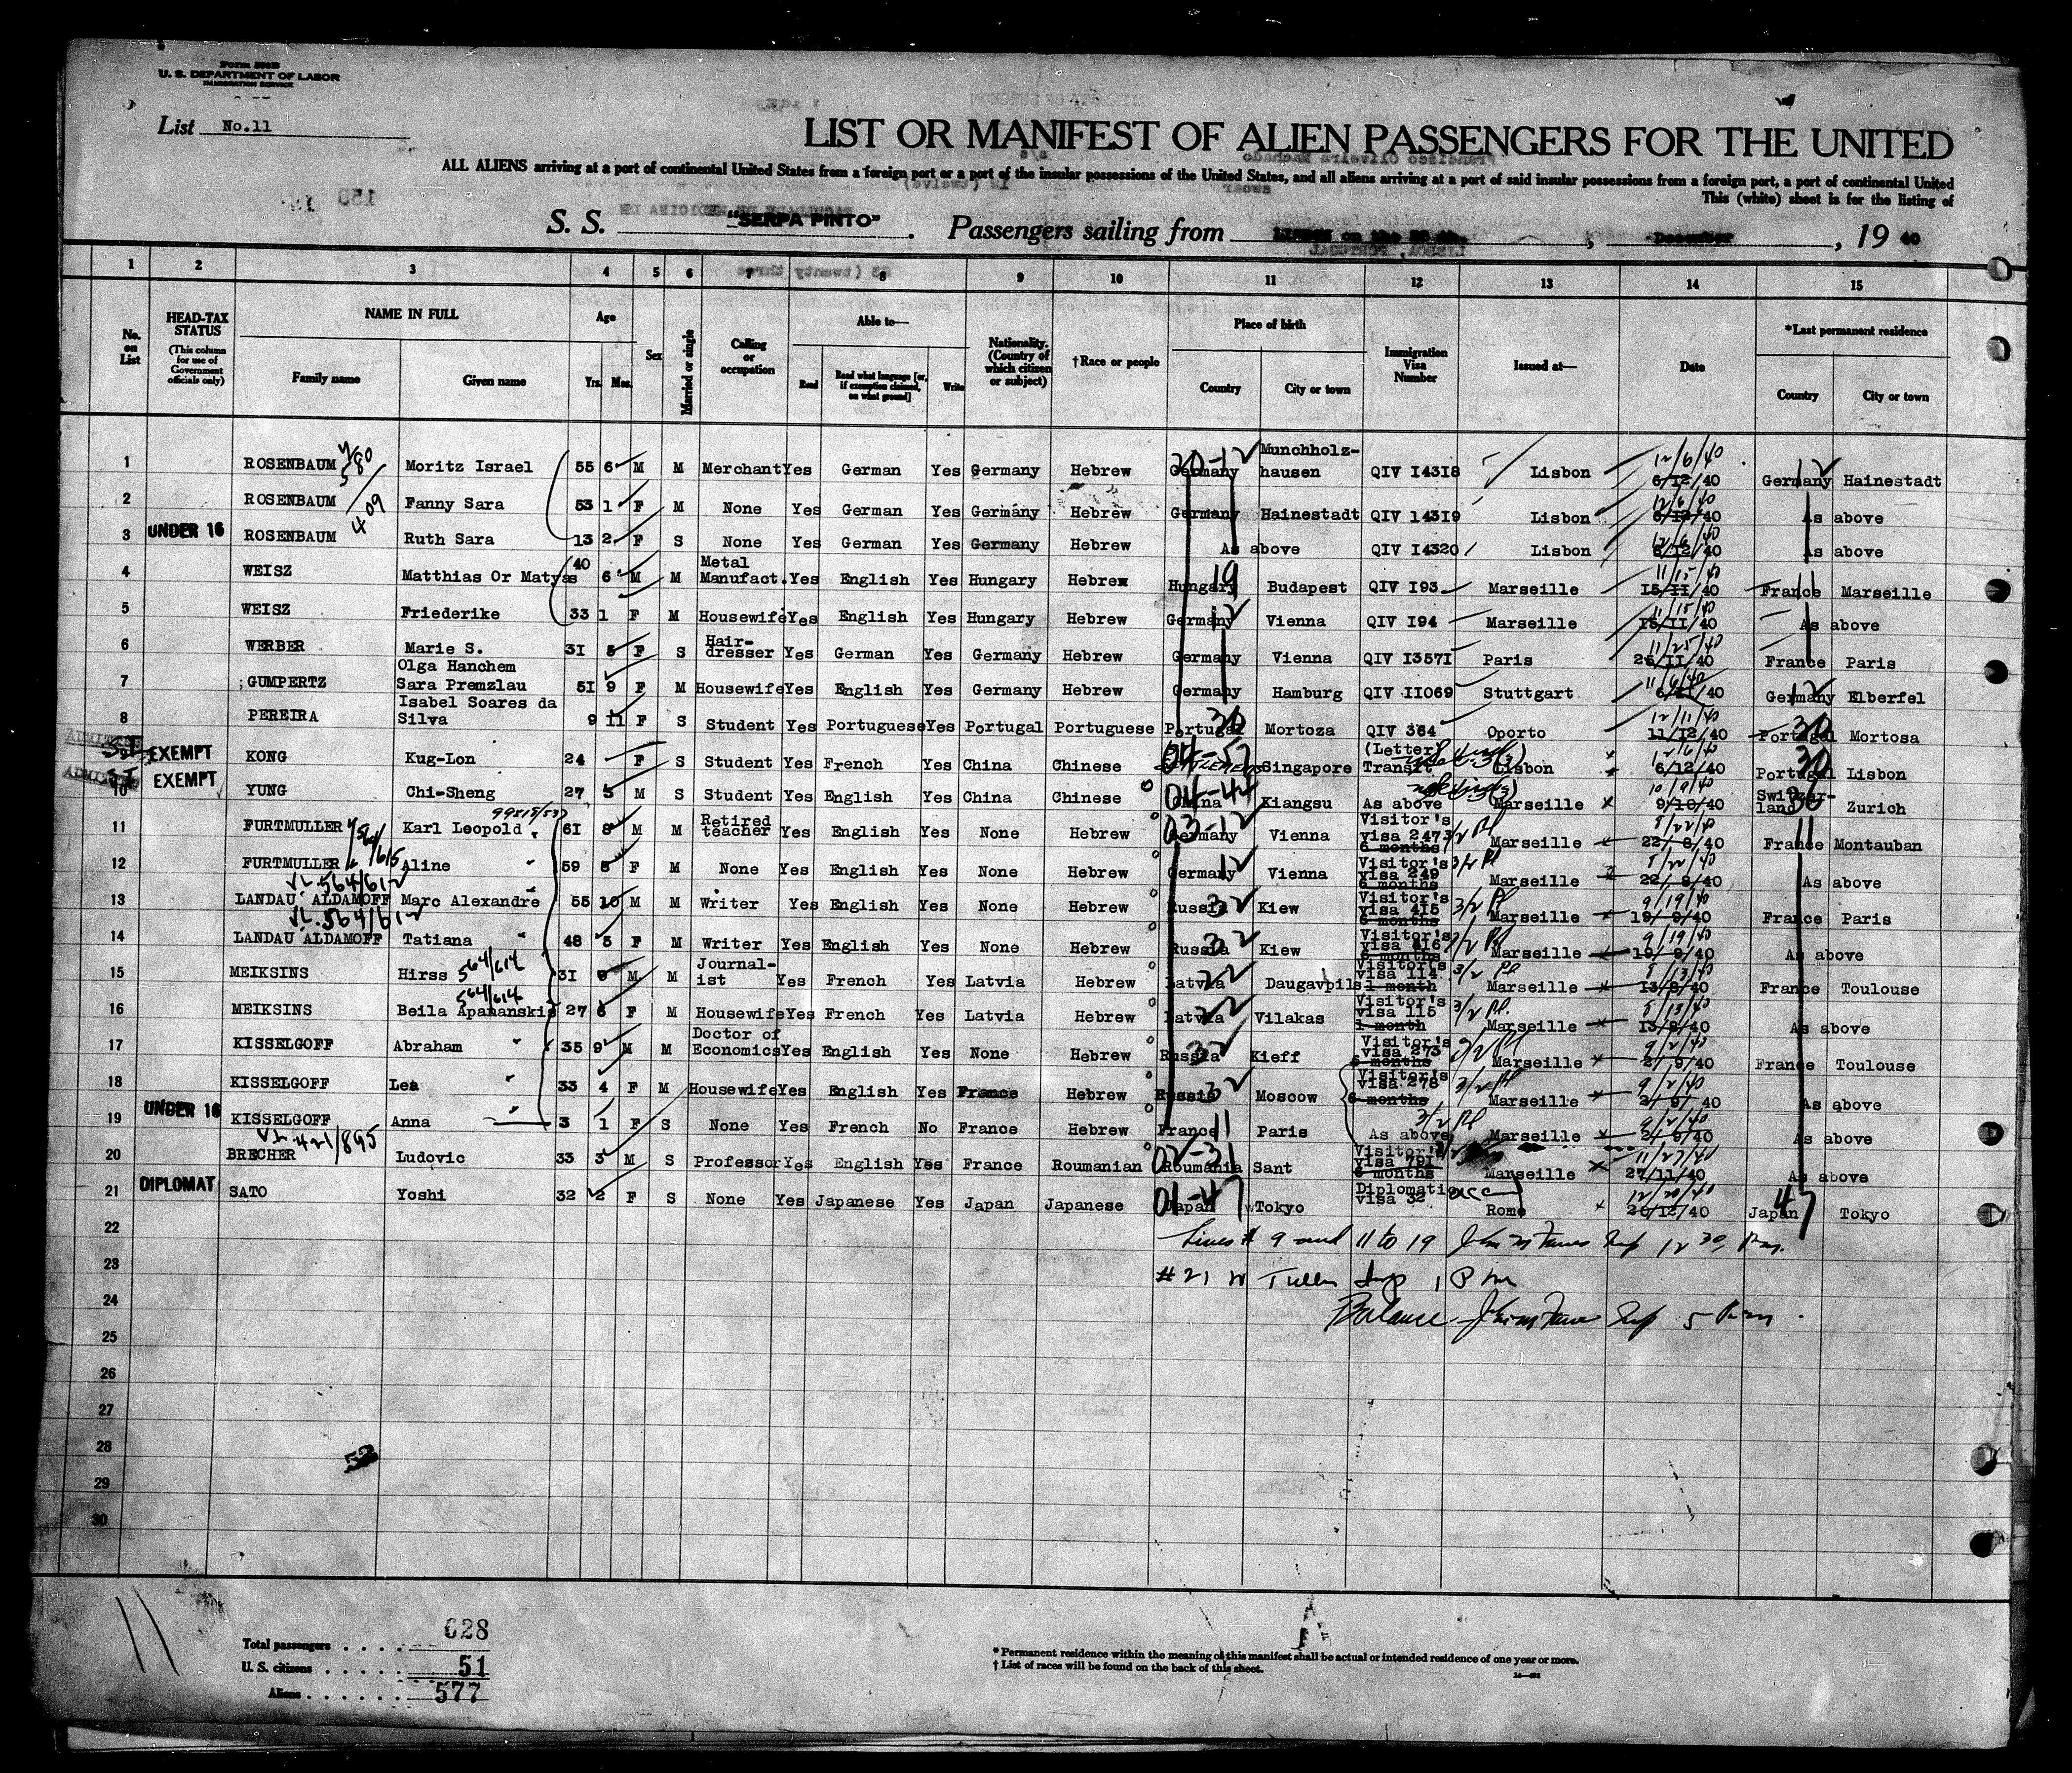 Form 500B
U. S. DEPARTMENT OF LABOR
IMMIGRATION SERVICE
List No.11
LIST OR MANIFEST OF ALIEN PASSENGERS FOR THE UNITED
ALL ALIENS arriving at a port of continental United States from a foreign port or a port of the insular possessions of the United States, and all aliens arriving at a port of said insular possessions from a foreign port, a port of continental United
This (white) sheet is for the listing of
S. S. "SERPA PINTO". Passengers sailing from , December , 19 40
1 2 3 4 5 6 7 8 9 10 11 12 13 14 15
No. on List
HEAD-TAX STATUS (This column for use of Government officials only)
NAME IN FULL Family name Given name
Age Yrs. Mos.
Sex
Married or single
Calling or occupation
Able to— Read Read what language [or, if exemption claimed, on what ground] Write
Nationality. (Country of which citizen or subject)
†Race or people
Place of birth Country City or town
Immigration Visa Number
Issued at—
Date
*Last permanent residence Country City or town
1 ROSENBAUM Moritz Israel 55 6 M M Merchant Yes German Yes Germany Hebrew Germany Munchholz-hausen QIV I4318 Lisbon 12/6/40 6/12/40 Germany Hainestadt
2 ROSENBAUM Fanny Sara 53 1 F M None Yes German Yes Germany Hebrew Germany Hainestadt QIV 14319 Lisbon 12/6/40 6/12/40 As above
3 UNDER 16 ROSENBAUM Ruth Sara 13 2 F S None Yes German Yes Germany Hebrew As above QIV I4320 Lisbon 12/6/40 6/12/40 As above
4 WEISZ Matthias Or Matyas 40 6 M M Metal Manufact. Yes English Yes Hungary Hebrew Hungary Budapest QIV I93 Marseille 11/15/40 15/11/40 France Marseille
5 WEISZ Friederike 33 1 F M Housewife Yes English Yes Hungary Hebrew Germany Vienna QIV I94 Marseille 11/15/40 15/11/40 As above
6 WERBER Marie S. 3I 5 F S Hair-dresser Yes German Yes Germany Hebrew Germany Vienna QIV I357I Paris 11/25/40 25/11/40 France Paris
7 GUMPERTZ Olga Hanchem Sara Premzlau 5I 9 F M Housewife Yes English Yes Germany Hebrew Germany Hamburg QIV II069 Stuttgart 11/6/40 6/11/40 Germany Elberfel
8 PEREIRA Isabel Soares da Silva 9 11 F S Student Yes Portuguese Yes Portugal Portuguese Portugal Mortoza QIV 364 Oporto 12/11/40 11/12/40 Portugal Mortosa
EXEMPT KONG Kug-Lon 24 F S Student Yes French Yes China Chinese Singapore (Letter) Transit Lisbon 12/6/40 6/12/40 Portugal Lisbon
10 EXEMPT YUNG Chi-Sheng 27 5 M S Student Yes English Yes China Chinese China Kiangsu As above Marseille 10/9/40 9/10/40 Switzer-land Zurich
11 FURTMULLER Karl Leopold 6I 8 M M Retired teacher Yes English Yes None Hebrew Germany Vienna Visitor's visa 247 6 months Marseille 8/22/40 22/8/40 France Montauban
12 FURTMULLER Aline 59 5 F M None Yes English Yes None Hebrew Germany Vienna Visitor's visa 249 6 months Marseille 8/22/40 22/8/40 As above
13 LANDAU ALDAMOFF Marc Alexandre 55 10 M M Writer Yes English Yes None Hebrew Russia Kiew Visitor's visa 415 6 months Marseille 9/19/40 19/9/40 France Paris
14 LANDAU ALDAMOFF Tatiana 48 5 F M Writer Yes English Yes None Hebrew Russia Kiew Visitor's visa 416 6 months Marseille 9/19/40 19/9/40 As above
15 MEIKSINS Hirss 3I M M Journal-ist Yes French Yes Latvia Hebrew Latvia Daugavpils Visitor's visa 114 1 month Marseille 8/13/40 13/8/40 France Toulouse
16 MEIKSINS Beila Apahanskis 27 6 F M Housewife Yes French Yes Latvia Hebrew Latvia Vilakas Visitor's visa 115 1 month Marseille 8/13/40 13/8/40 As above
17 KISSELGOFF Abraham 35 9 M M Doctor of Economics Yes English Yes None Hebrew Russia Kieff Visitor's visa 273 6 months Marseille 9/2/40 2/9/40 France Toulouse
18 KISSELGOFF Lea 33 4 F M Housewife Yes English Yes France Hebrew Russia Moscow Visitor's visa 278 6 months Marseille 9/2/40 2/9/40 As above
19 UNDER 16 KISSELGOFF Anna 3 1 F S None Yes French No France Hebrew France Paris As above Marseille 9/2/40 2/9/40 As above
20 BRECHER Ludovic 33 3 M S Professor Yes English Yes France Roumanian Roumania Sant Visitor's visa 791 6 months Marseille 11/27/40 27/11/40 As above
21 DIPLOMAT SATO Yoshi 32 2 F S None Yes Japanese Yes Japan Japanese Japan Tokyo Diplomatic visa 32 Rome 12/20/40 20/12/40 Japan Tokyo
22 Lines # 9 and 11 to 19
23 # 21
24 Balance
25
26
27
28
29
30
52
Total passengers . . . . 628
U. S. citizens . . . . . 51
Aliens . . . . . . 577
* Permanent residence within the meaning of this manifest shall be actual or intended residence of one year or more.
† List of races will be found on the back of this sheet.